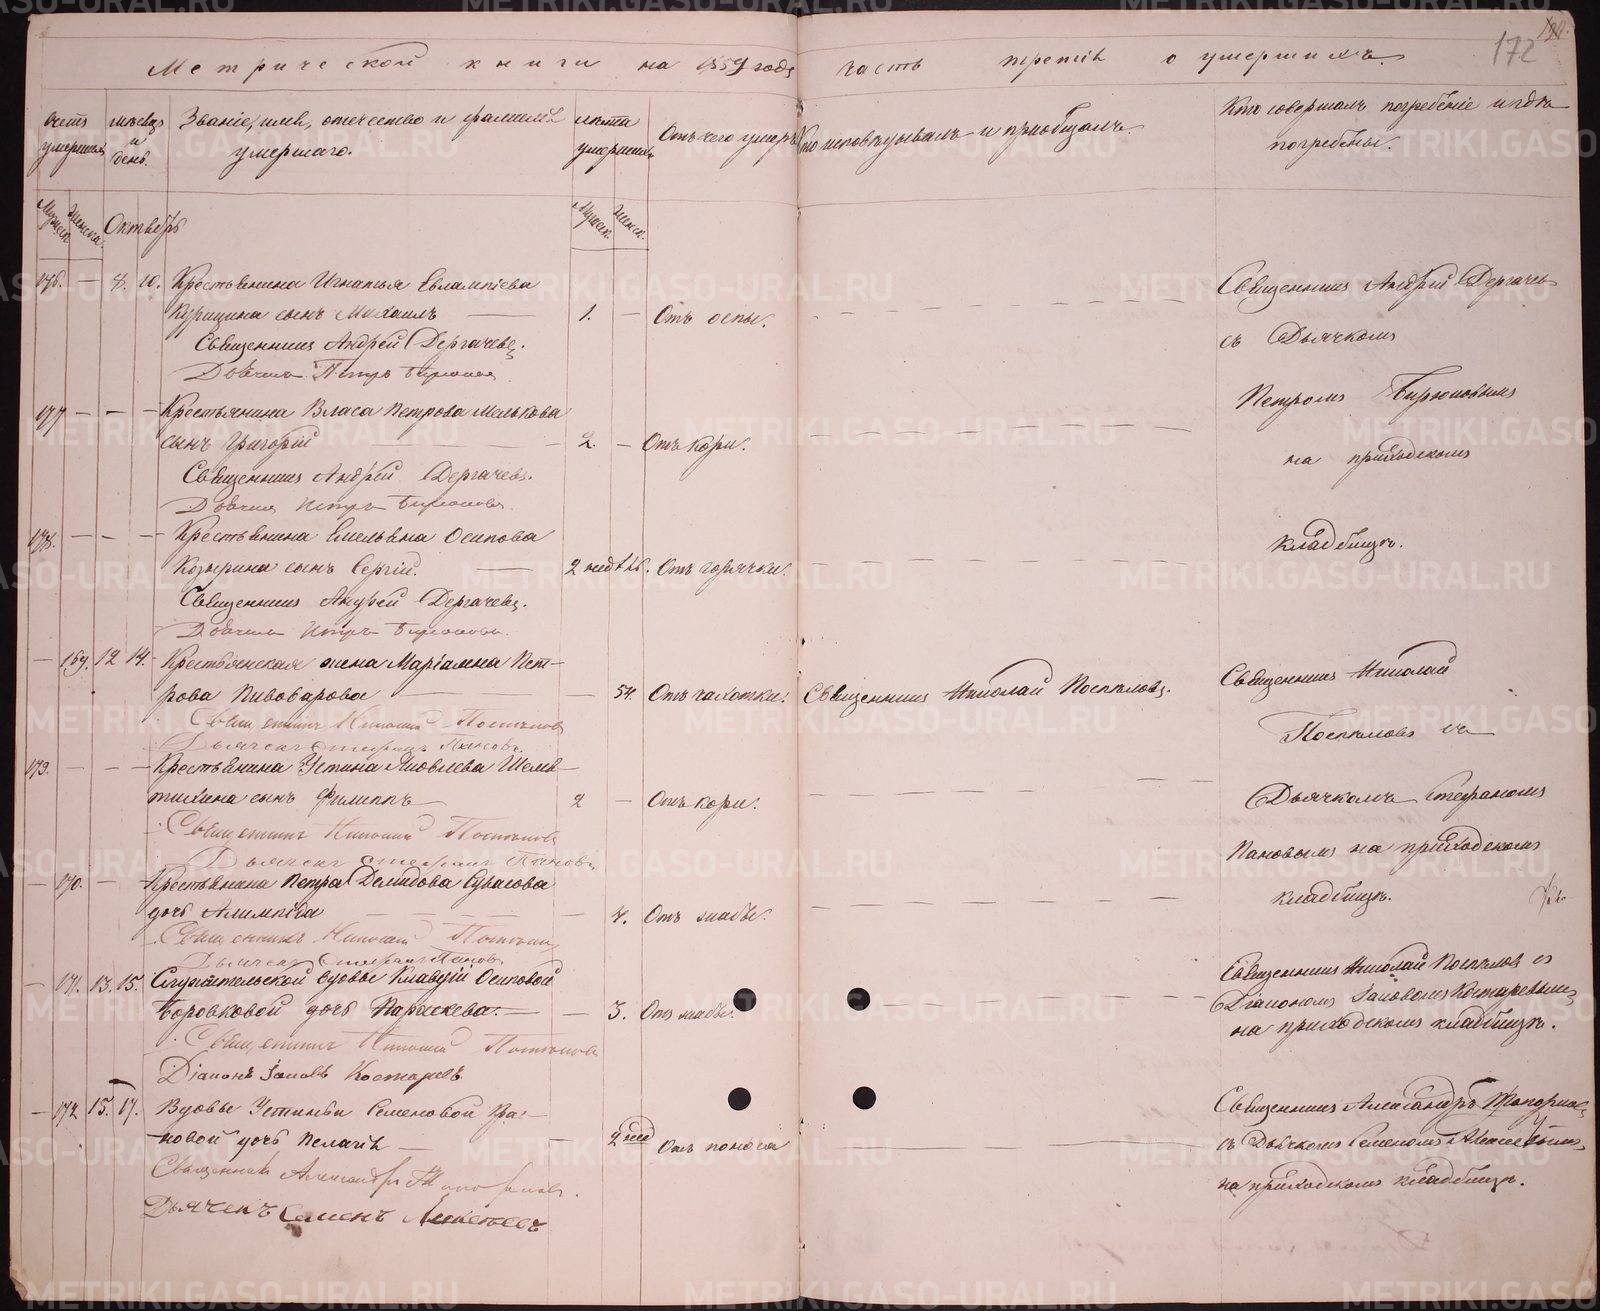 Метрической книги на 1859 годъ часть третія о умершихъ.
172
Счетъ умершихъ
мѣсяцъ и день.
Званіе, имя, отчество и фамилія умершаго.
лѣта умершаго
Отъ чего умеръ
Кто исповѣдывалъ и пріобщалъ.
Кто совершалъ погребеніе и гдѣ погребены.
Мужеск. Женска. Октябрь Мужеск. Женск.
176. — 8. 10. Крестьянина Игнатья Евлампіева
Курицина сынъ Михаилъ — 1. — Отъ оспы.
Священникъ Андрей Дергачевъ.
Дьячекъ Петръ Бирюковъ
Священникъ Андрей Дергачевъ
съ Дьячкомъ
Петромъ Бирюковымъ
на приходскомъ
кладбищѣ.
177 — — — Крестьянина Власа Петрова Мелькова
сынъ Григорій — 2. — Отъ кори.
Священникъ Андрей Дергачевъ.
Дьячекъ Петръ Бирюковъ.
178. — — — Крестьянина Емельяна Осипова
Козырина сынъ Сергій. — 2 недѣль. Отъ горячки.
Священникъ Андрей Дергачевъ.
Дьячекъ Петръ Бирюковъ.
— 169. 12 14. Крестьянская жена Маріамна Пет-
рова Пивоварова — 54. Отъ чахотки. Священникъ Николай Поспѣловъ.
Священникъ Николай Поспѣловъ
Дьячекъ Стефанъ Пановъ.
Священникъ Николай
Поспѣловъ съ
Дьячкомъ Стефаномъ
Пановымъ на приходскомъ
кладбищѣ.
179. — — — Крестьянина Устина Яковлева Шеме-
тихина сынъ Филиппъ — 2 — Отъ кори.
Священникъ Николай Поспѣловъ
Дьячекъ Стефанъ Пановъ
— 170. — Крестьянина Петра Демидова Сурасова
дочь Алимпіада — 4. Отъ слабы.
Священникъ Николай Поспѣловъ
Дьячекъ Стефанъ Пановъ.
— 171. 13. 15. Служительской вдовы Клавдіи Осиповой
Боровковой дочь Параскева. — 3. Отъ слабы.
Священникъ Николай Поспѣловъ
Діаконъ Іаковъ Костаревъ
Священникъ Николай Поспѣловъ съ
Діакономъ Іаковомъ Костаревымъ
на приходскомъ кладбищѣ.
— 172 15. 17. Вдовы Устиньи Семеновой
новой дочь Пелагія — 2 нед Отъ поноса
Священникъ Александръ
Дьячекъ Семенъ Алексѣевъ
Священникъ Александръ
съ Дьячкомъ Семеномъ Алексѣевымъ
на приходскомъ кладбищѣ.
METRIKI.GASO-URAL.RU